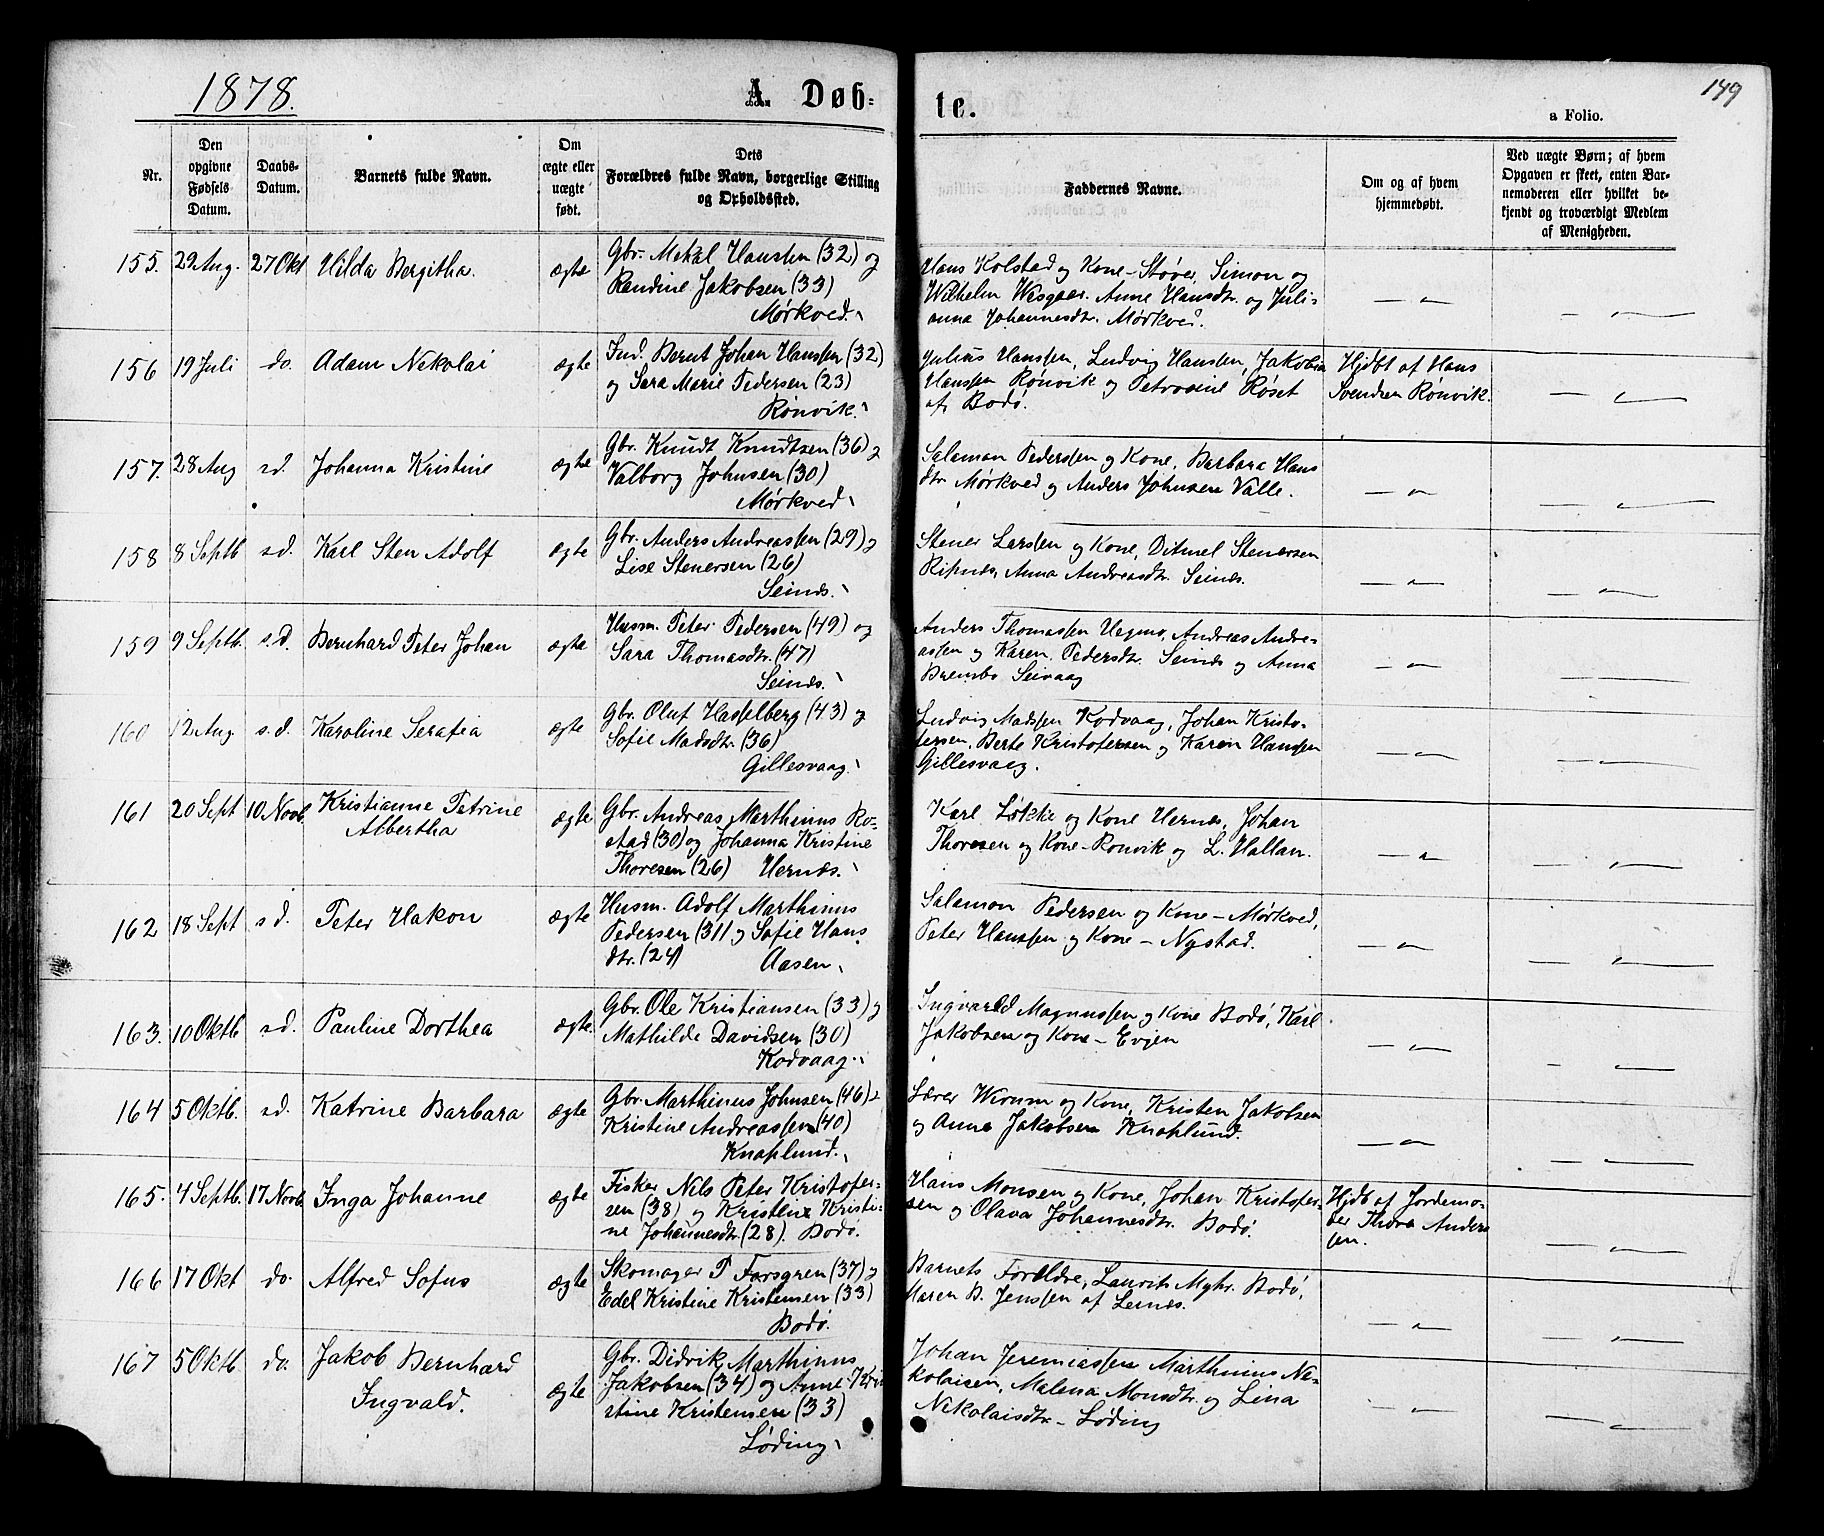 1878.
A. Døb-
te.
149
a Folio.
Nr.
Den opgivne Fødsels Datum.
Daabs-Datum.
Barnets fulde Navn.
Om ægte eller uægte født.
Dets Forældres fulde Navn, borgerlige Stilling og Opholdssted.
Faddernes Navne.
Om og af hvem hjemmedøbt.
Ved uægte Børn; af hvem Opgaven er skeet, enten Barnemoderen eller hvilket bekjendt og troværdigt Medlem af Menigheden.
155. 29 Aug. 27 Okt Hilda Bergitha. ægte
Gbr. Mekal Hanssen (32) og
Randine Jakobsen (33)
Mørkved.
Hans Kolstad og Kone - Støver, Simon og
Wilhelm Anne Hansdtr. og Juli-
anna Johannesdtr. Mørkved.
156 19 Juli do. Adam Nikolai ægte
Ind. Bernt Johan Hanssen (32)
og Sara Marie Pedersen (23)
Rønvik.
Julius Hanssen, Ludvig Hanssen, Jakobine
Hanssen Rønvik og Petrosine Røset
af Bodø.
Hjdbt af Hans
Svendsen Rønvik.
157. 28 Aug s.d. Johanna Kristine ægte
Gbr. Knudt Knudtsen (36) og
Valborg Johnsen (30)
Mørkved
Salamon Pederssen og Kone, Barbara Hans
dtr Mørkved og Anders Johnsen Valle.
158 8 Septb s.d. Karl Sten Adolf ægte
Gbr. Anders Andreassen (29) og
Lise Stenersen (26)
Seines.
Stener Larssen og Kone, Ditmel Stenersen
Anna Andreasdtr. Seines.
159 9 Septb. s.d. Bernhard Peter Johan ægte
Husm. Peter Pedersen (49) og
Sara Thomasdtr. (47)
Seines.
Anders Thomassen Andreas Andre-
assen og Karen Pedersdtr. Seines og Anna
Seivaag
160 12 Aug s.d. Karoline Serafia ægte
Gbr. Oluf Hasselberg (43) og
Sofie Madsdtr. (36)
Gillesvaag.
Ludvig Madssen Kodvaag, Johan Kristo-
fersen, Berte Kristofersen og Karen Hanssen
Gillesvaag.
161 20 Sept 10 Novb. Kristianne Petrine
Albertha ægte
Gbr. Andreas Marthinus Ro-
stad (30) og Johanna Kristine
Thoresen (26) Hernes.
Karl Løkke og Kone Hernes, Johan
Thoresen og Kone - Rønvik og L. Hallan.
162 18 Sept s.d. Peter Hakon ægte
Husm. Adolf Marthinus
Pedersen (31) og Sofie Hans
dtr. (24) Aasen.
Salamon Pedersen og Kone - Mørkved,
Peter Hanssen og Kone - Nystad.
163. 10 Oktb s.d. Pauline Dorthea ægte.
Gbr. Ole Kristiansen (33) og
Mathilde Davidsen (30)
Kodvaag.
Ingvarld Magnussen og Kone Bodø, Karl
Jakobsen og Kone - Evjen
164 5 Oktb. s.d. Katrine Barbara ægte
Gbr. Marthinus Johnsen (46) og
Kristine Andreassen (40)
Knaplund.
Lærer Worum og Kone, Kristen Jakobsen
og Anna Jakobsen Knaplund.
165. 4 Septb. 17 Novb. Inga Johanne ægte
Fisker Nils Peter Kristofer-
sen (38) og Kristine Kristi-
ne Johannesdtr. (28). Bodø.
Hans Monsen og Kone, Johan Kristofer-
sen og Olava Johannesdtr. Bodø.
Hjdb af Jordemo-
der Thora Anders
sen.
166 17 Okt do. Alfred Sofus ægte
Skomager P Forsgren (37) og
Edel Kristine Kristensen (33)
Bodø.
Barnets Forældre, Laurits Myhr. Bodø,
Maren B. Jenssen af Lernes.
167 5 Oktb do. Jakob Bernhard
Ingvald. ægte
Gbr. Didrik Marthinus
Jakobsen (34) og Anne Kri-
stine Kristensen (33)
Løding
Johan Jeremiassen Marthinus Ni-
kolaisen, Malena Monsdtr. og Lina
Nikolaisdtr - Løding